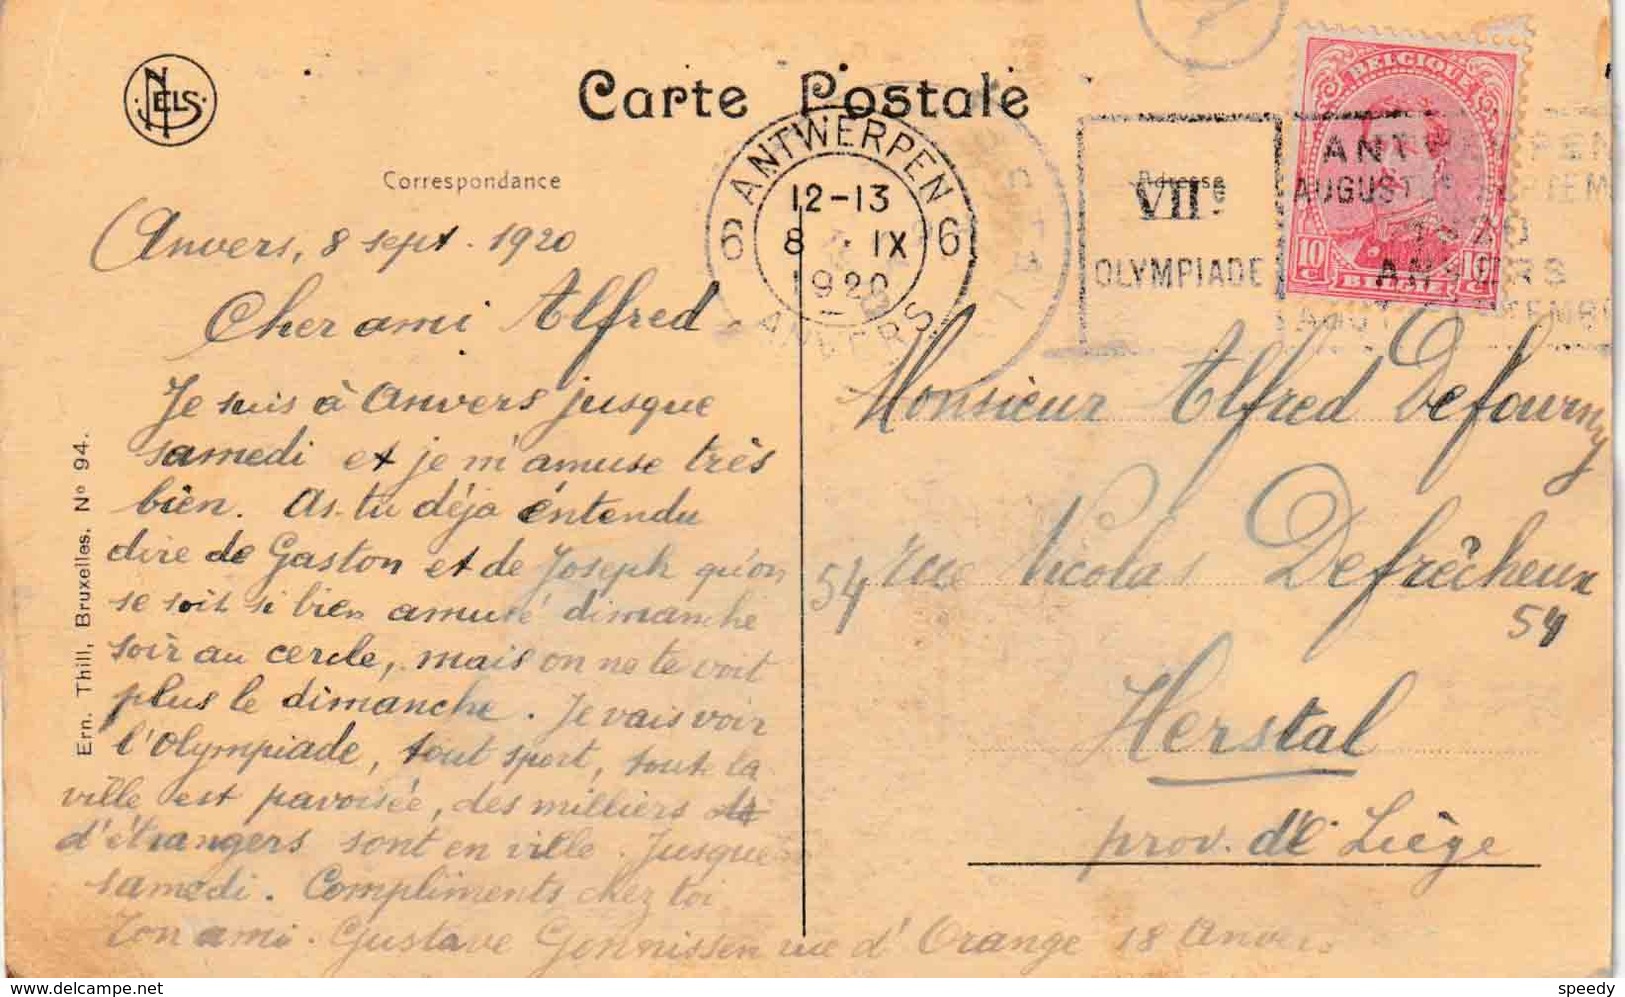 NELS
Carte Postale
Correspondance
Adresse
ANTWERPEN
6 6
12-13
8 IX
1920
ANVERS
VIIe
OLYMPIADE
ANTWERPEN
AUGUST SEPTEMB
1920
ANVERS
AOUT SEPTEMBRE
BELGIQUE
10 c 10 c
BELGIË
Anvers, 8 sept. 1920
Cher ami Alfred
Je suis à Anvers jusque
samedi et je m'amuse très
bien. As-tu déja éntendu
dire de Gaston et de Joseph qu'on
se soit si bien amusé dimanche
soir au cercle, mais on ne te voit
plus le dimanche. Je vais voir
l'Olympiade, tout sport, toute la
ville est pavoisée, des milliers
d'étrangers sont en ville. Jusque
samedi. Compliments chez toi
Ton ami. Gustave Gonnissen rue d'Orange 18 Anvers
Monsieur Alfred Defourny
54 rue Nicolas Defrêcheux
54
Herstal
prov. de Liège
Ern. Thill, Bruxelles. No 94.
speedy